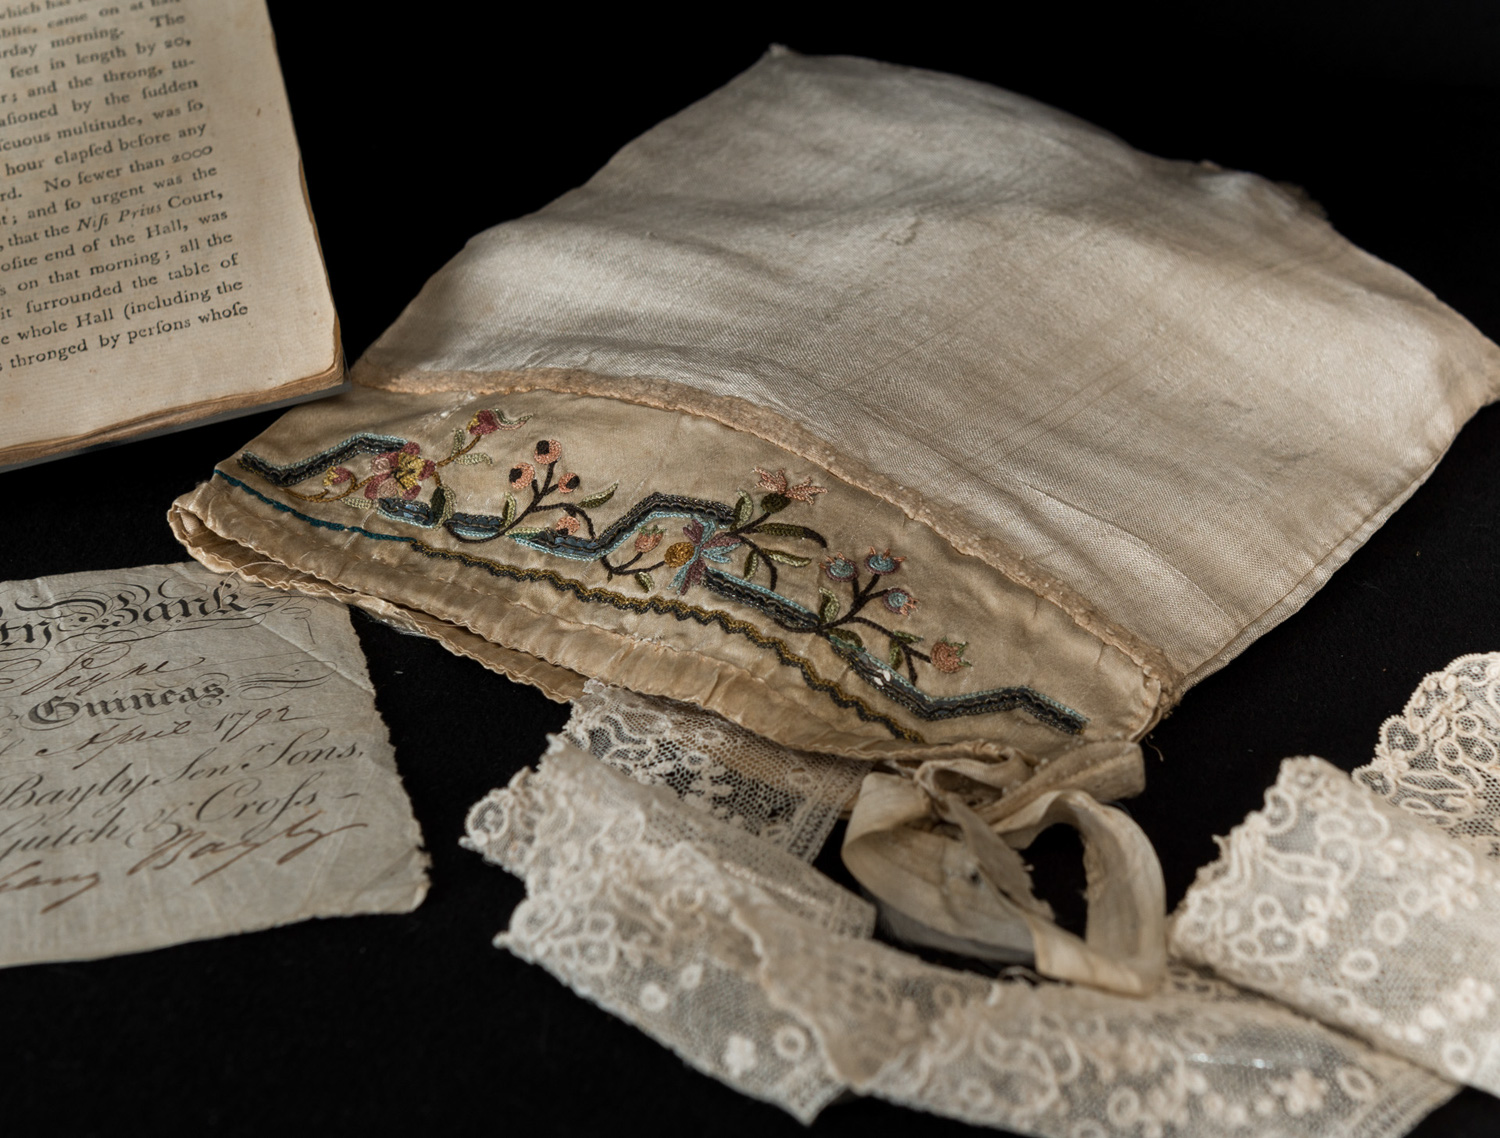 which has
ublic, came on at half
urday morning. The
feet in length by 20,
r; and the throng, tu-
aſioned by the ſudden
ſcuous multitude, was ſo
hour elapſed before any
rd. No fewer than 2000
t; and ſo urgent was the
, that the Niſi Prius Court,
oſite end of the Hall, was
s on that morning; all the
it ſurrounded the table of
e whole Hall (including the
s thronged by perſons whoſe
ty Bank
Guineas
April 1792
Bayly Senr. Sons,
Gutch & Croſs
Bayly